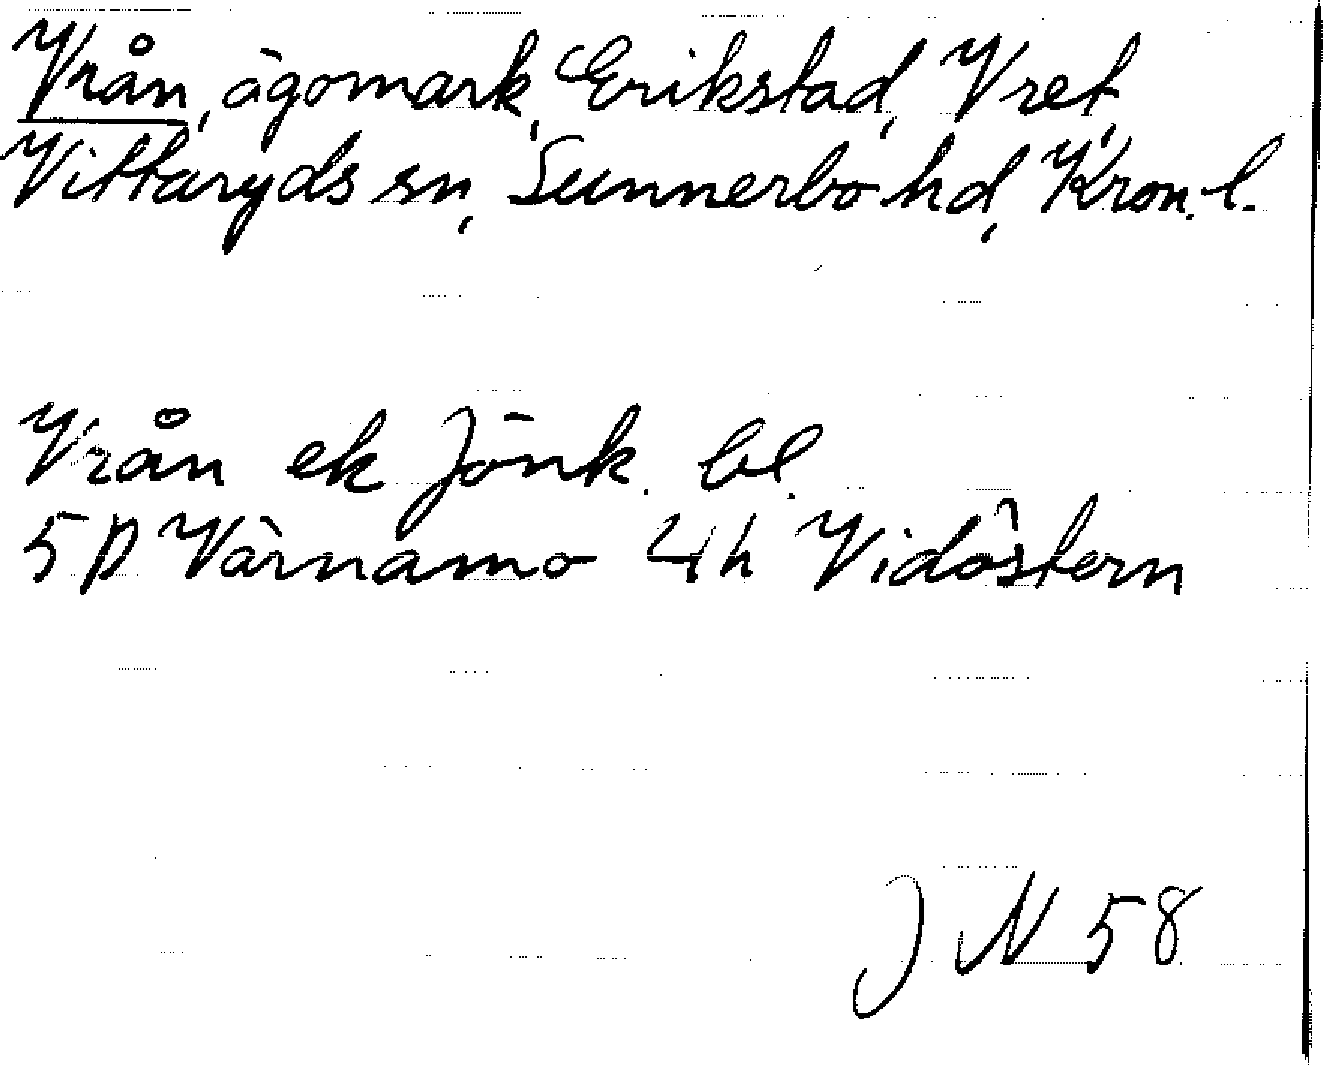 Vrån, ägomark, Erikstad, Vret,
Vittaryds sn, Sunnerbo hd, Kron. l.
Vrån ek Jönk. bl.
5 D Värnamo 4 h Vidöstern
J N 58